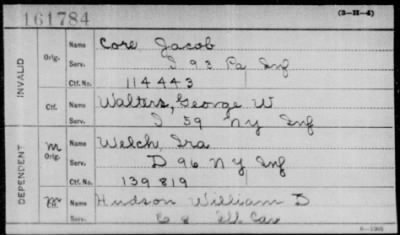 161784
(3-H-4)
INVALID
Orig.
Name Core, Jacob
Serv. I 93 Pa Inf
Ctf. No. 114443
Ctf.
Name Walters, George W
Serv. I 59 NY Inf
DEPENDENT
M
Orig.
Name Welch, Ira
Serv. D 96 NY Inf
Ctf. No. 139819
Name Hudson William D
Serv. 8 Ill Cav